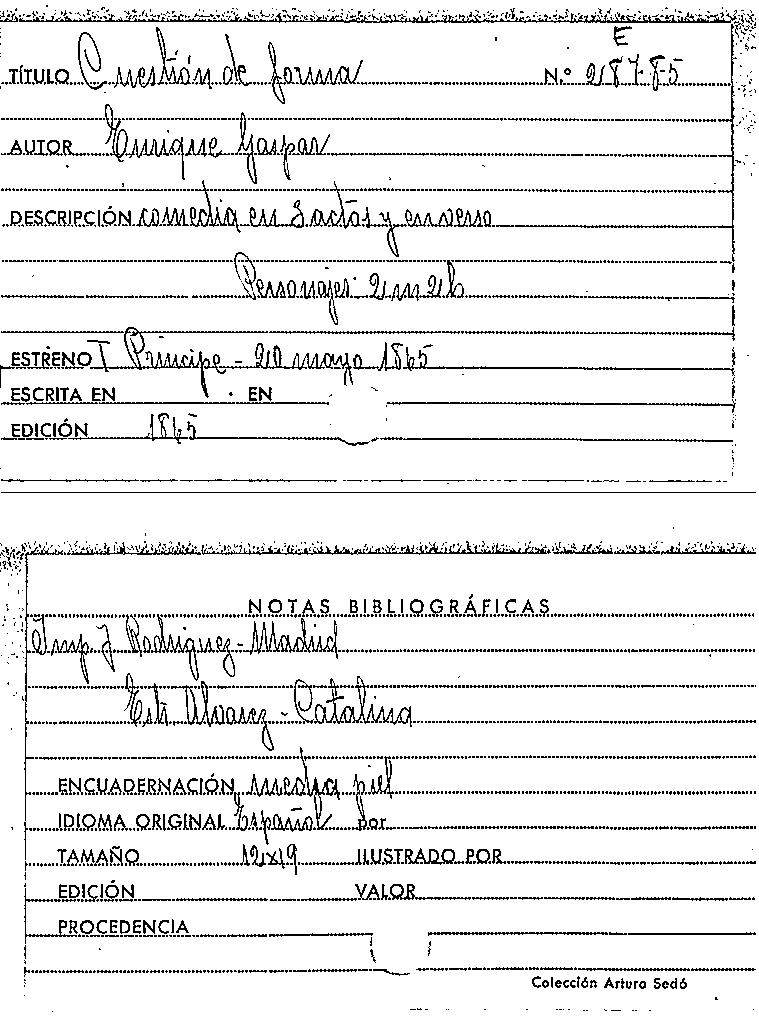 E
TÍTULO Cuestión de forma N.º 287-8-5
AUTOR Enrique Gaspar
DESCRIPCIÓN comedia en 3 actos y en verso
Personajes: 2m 2h
ESTRENO T Principe - 20 mayo 1865
ESCRITA EN EN
EDICIÓN 1865
NOTAS BIBLIOGRÁFICAS
Imp. J Rodriguez - Madrid
Estr Alvarez - Catalina
ENCUADERNACIÓN media piel
IDIOMA ORIGINAL Español por
TAMAÑO 12x19 ILUSTRADO POR
EDICIÓN VALOR
PROCEDENCIA
Colección Arturo Sedó